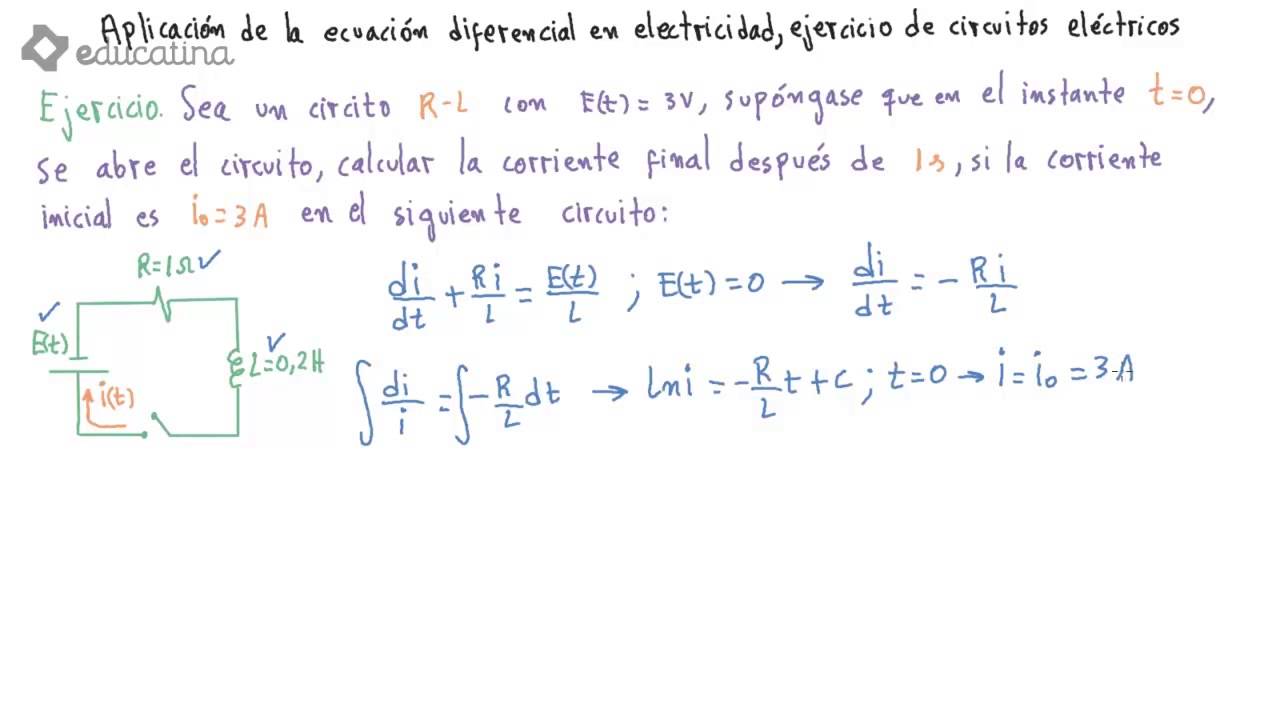 Aplicación de la ecuación diferencial en electricidad, ejercicio de circuitos eléctricos
educatina
Ejercicio. Sea un circito R-L con E(t) = 3V, supóngase que en el instante t=0,
se abre el circuito, calcular la corriente final después de 1s, si la corriente
inicial es i₀=3A en el siguiente circuito:
R=1Ω ✓
di/dt + Ri/L = E(t)/L ; E(t)=0 → di/dt = - Ri/L
✓
E(t)
✓
L=0,2H
i(t)
∫ di/i = ∫ - R/L dt → ln i = - R/L t + c ; t=0 → i = i₀ = 3A